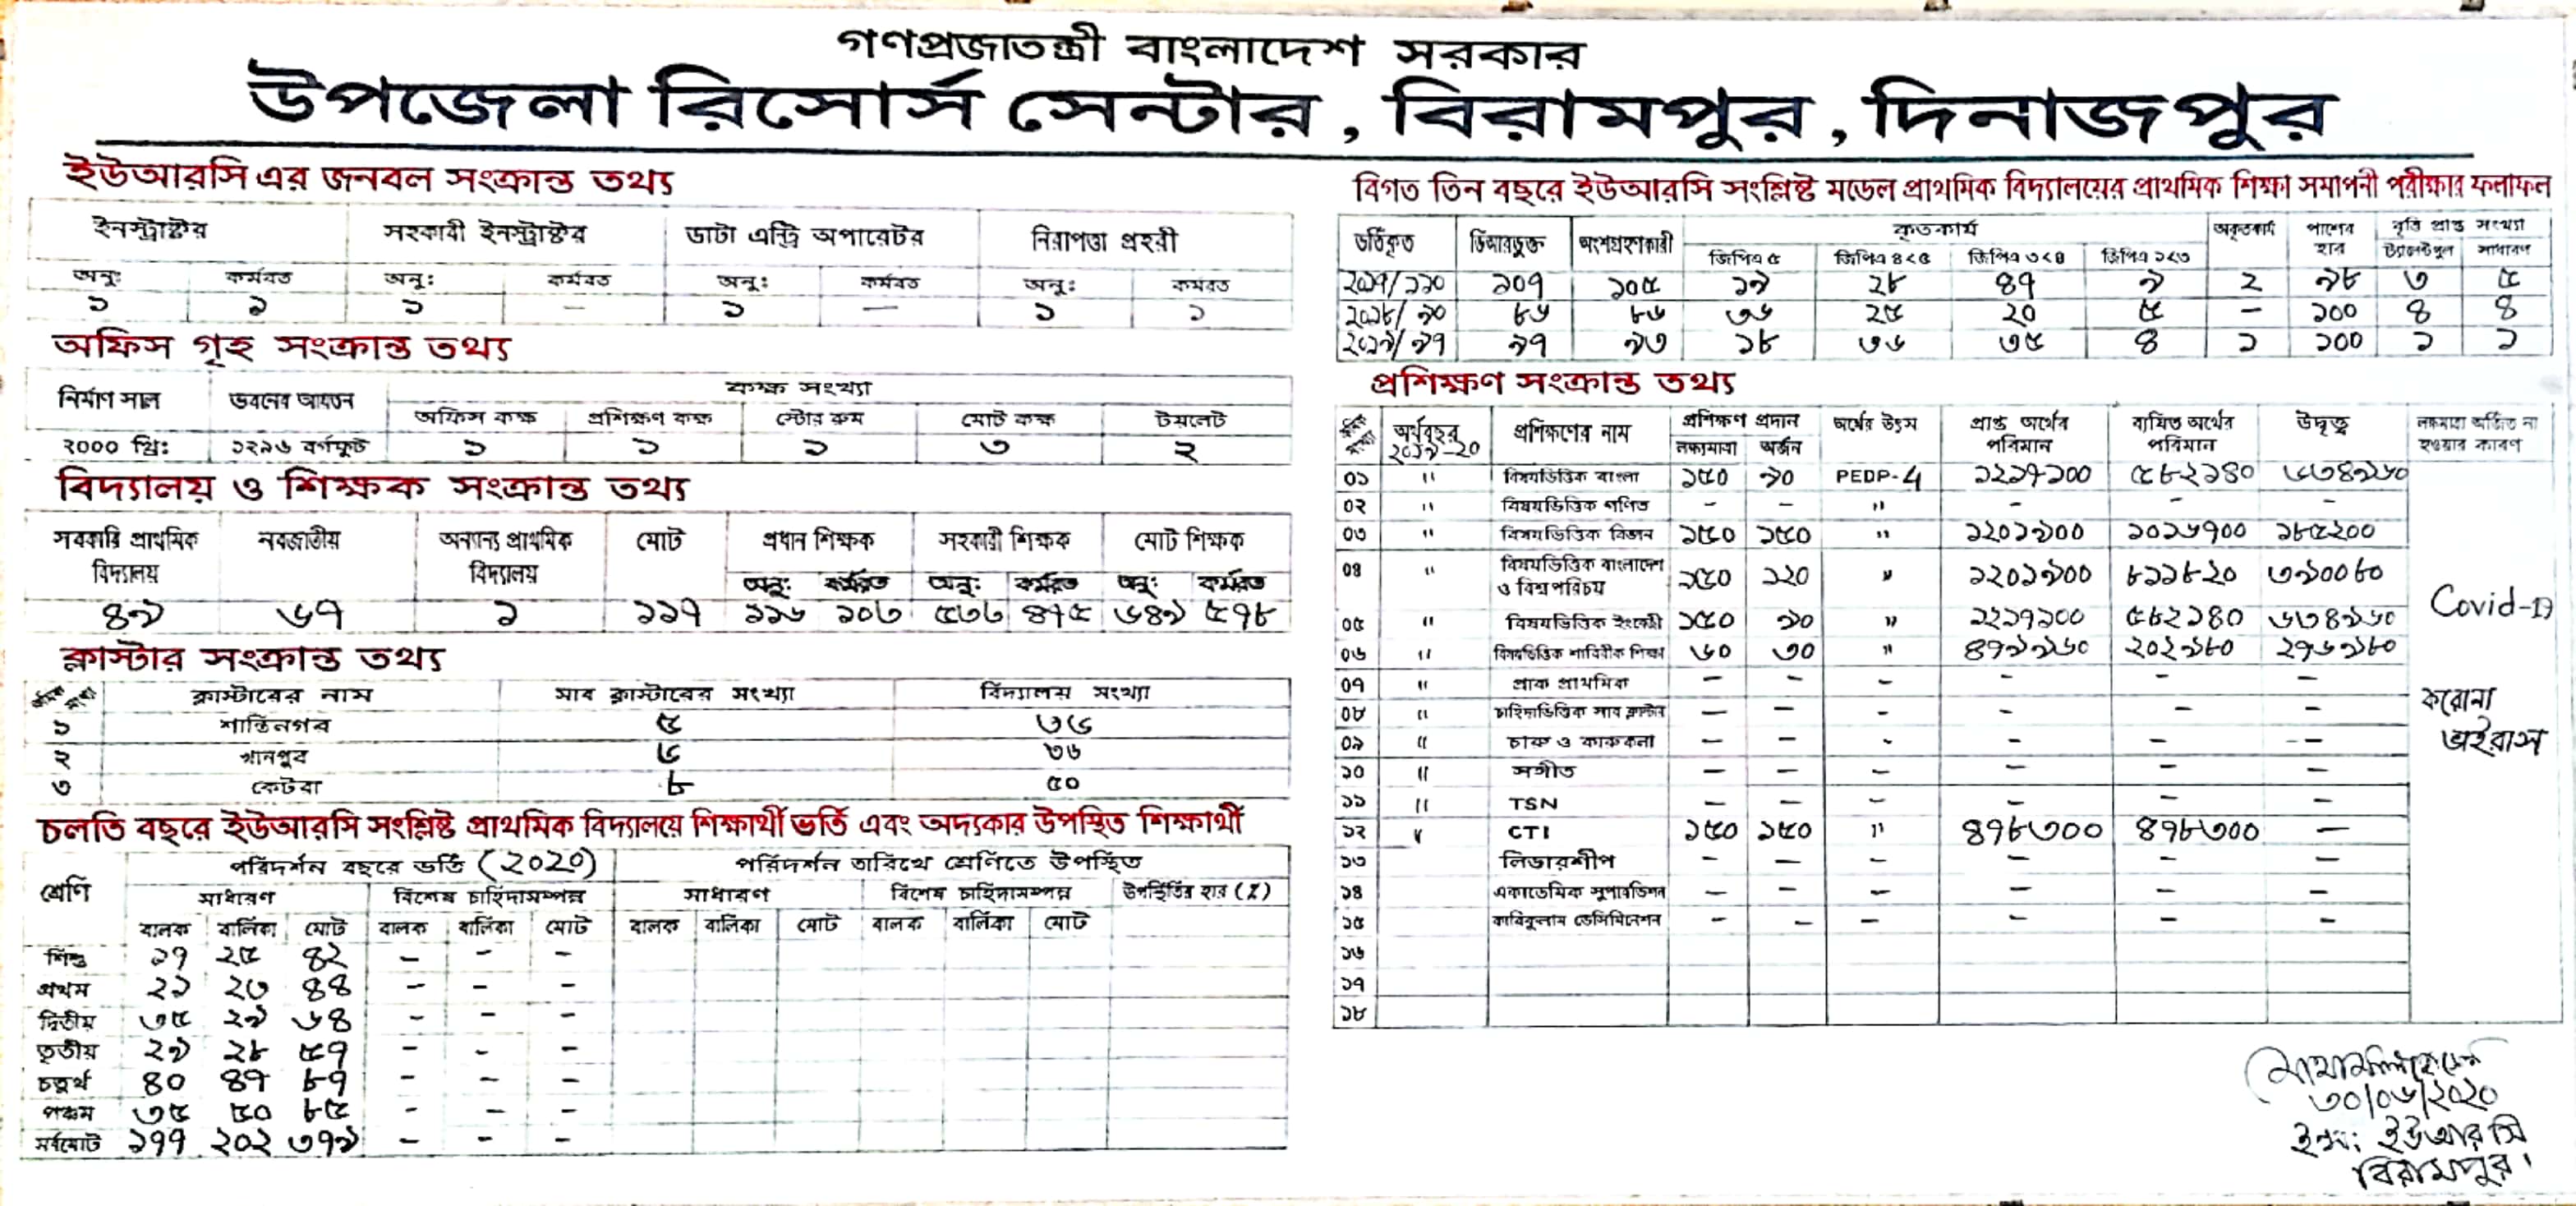 গণপ্রজাতন্ত্রী বাংলাদেশ সরকার
উপজেলা রিসোর্স সেন্টার, বিরামপুর, দিনাজপুর
ইউআরসি এর জনবল সংক্রান্ত তথ্য
ইনস্ট্রাক্টর সহকারী ইনস্ট্রাক্টর ডাটা এন্ট্রি অপারেটর নিরাপত্তা প্রহরী
অনু: কর্মরত অনু: কর্মরত অনু: কর্মরত অনু: কর্মরত
১ ১ ১ — ১ — ১ ১
অফিস গৃহ সংক্রান্ত তথ্য
নির্মাণ সাল ভবনের আয়তন কক্ষ সংখ্যা
অফিস কক্ষ প্রশিক্ষণ কক্ষ স্টোর রুম মোট কক্ষ টয়লেট
২০০০ খ্রি: ১২৯৬ বর্গফুট ১ ১ ১ ৩ ২
বিদ্যালয় ও শিক্ষক সংক্রান্ত তথ্য
সরকারি প্রাথমিক বিদ্যালয় নবজাতীয় অন্যান্য প্রাথমিক বিদ্যালয় মোট প্রধান শিক্ষক সহকারী শিক্ষক মোট শিক্ষক
অনু: কর্মরত অনু: কর্মরত অনু: কর্মরত
৪৯ ৬৭ ১ ১১৭ ১১৬ ১০৩ ৫৩৩ ৪৭৫ ৬৪৯ ৫৭৮
ক্লাস্টার সংক্রান্ত তথ্য
ক্লাস্টারের নাম সাব ক্লাস্টারের সংখ্যা বিদ্যালয় সংখ্যা
১ শান্তিনগর ৫
২ খানপুর ৩৬
৩ কেটরা ৮ ৫০
চলতি বছরে ইউআরসি সংশ্লিষ্ট প্রাথমিক বিদ্যালয়ে শিক্ষার্থী ভর্তি এবং অদ্যকার উপস্থিত শিক্ষার্থী
শ্রেণি পরিদর্শন বছরে ভর্তি (২০২০) পরিদর্শন তারিখে শ্রেণিতে উপস্থিত
সাধারণ বিশেষ চাহিদাসম্পন্ন সাধারণ বিশেষ চাহিদাসম্পন্ন উপস্থিতির হার (%)
বালক বালিকা মোট বালক বালিকা মোট বালক বালিকা মোট বালক বালিকা মোট
শিশু ১৭ ২৫ ৪২ - - -
প্রথম ২১ ২৩ ৪৪ - - -
দ্বিতীয় ৩৫ ২৯ ৬৪ - - -
তৃতীয় ২৯ ২৮ ৫৭ - - -
চতুর্থ ৪০ ৪৭ ৮৭ - - -
পঞ্চম ৩৫ ৫০ ৮৫ - - -
সর্বমোট ১৭৭ ২০২ ৩৭৯ - - -
বিগত তিন বছরে ইউআরসি সংশ্লিষ্ট মডেল প্রাথমিক বিদ্যালয়ের প্রাথমিক শিক্ষা সমাপনী পরীক্ষার ফলাফল
ভর্তিকৃত ডিআরভুক্ত অংশগ্রহণকারী কৃতকার্য অকৃতকার্য পাশের হার বৃত্তি প্রাপ্ত সংখ্যা
জিপিএ ৫ জিপিএ ৪<৫ জিপিএ ৩<৪ জিপিএ ১<৩ ট্যালেন্টপুল সাধারণ
২০১৭/১১০ ১০৭ ১০৫ ১৯ ২৮ ৪৭ ৯ ২ ৯৮ ৩ ৫
২০১৮/৯০ ৮৬ ৮৬ ৩৬ ২৫ ২০ ৫ - ১০০ ৪ ৪
২০১৯/৯৭ ৯৭ ৯৩ ১৮ ৩৬ ৩৫ ৪ ১ ১০০ ১ ১
প্রশিক্ষণ সংক্রান্ত তথ্য
অর্থবছর ২০১৯-২০ প্রশিক্ষণের নাম প্রশিক্ষণ প্রদান অর্থের উৎস প্রাপ্ত অর্থের পরিমান ব্যয়িত অর্থের পরিমান উদ্বৃত্ত লক্ষমাত্রা অর্জিত না হওয়ার কারণ
লক্ষ্যমাত্রা অর্জন
০১ " বিষয়ভিত্তিক বাংলা ১৫০ ৯০ PEDP-4 ১২১৭১০০ ৫৮২১৪০ ৬৩৪৯৬০
০২ " বিষয়ভিত্তিক গণিত - - " - - -
০৩ " বিষয়ভিত্তিক বিজ্ঞান ১৫০ ১৫০ " ১২০১৯০০ ১০১৬৭০০ ১৮৫২০০
০৪ " বিষয়ভিত্তিক বাংলাদেশ ও বিশ্ব পরিচয় ১৫০ ১২০ " ১২০১৯০০ ৮১১৮২০ ৩৯০০৮০
০৫ " বিষয়ভিত্তিক ইংরেজী ১৫০ ৯০ " ১২১৭১০০ ৫৮২১৪০ ৬৩৪৯৬০
০৬ " বিষয়ভিত্তিক শারিরীক শিক্ষা ৬০ ৩০ " ৪৭৯৯৬০ ২০২৯৮০ ২৭৬৯৮০
০৭ " প্রাক প্রাথমিক - - - - - -
০৮ " চাহিদাভিত্তিক সাব ক্লাস্টার - - - - - -
০৯ " চারু ও কারুকলা - - - - - --
১০ " সঙ্গীত - - - - - -
১১ " TSN - - - - - -
১২ " CTI ১৫০ ১৫০ " ৪৭৮৩০০ ৪৭৮৩০০ —
১৩ লিডারশীপ - - - - - -
১৪ একাডেমিক সুপারভিশন - - - - - -
১৫ কারিকুলাম ডেসিমিনেশন - - - - - -
১৬
১৭
১৮
Covid-19
করোনা
ভাইরাস
৩০/০৬/২০২০
ইন্স: ইউআরসি
বিরামপুর।